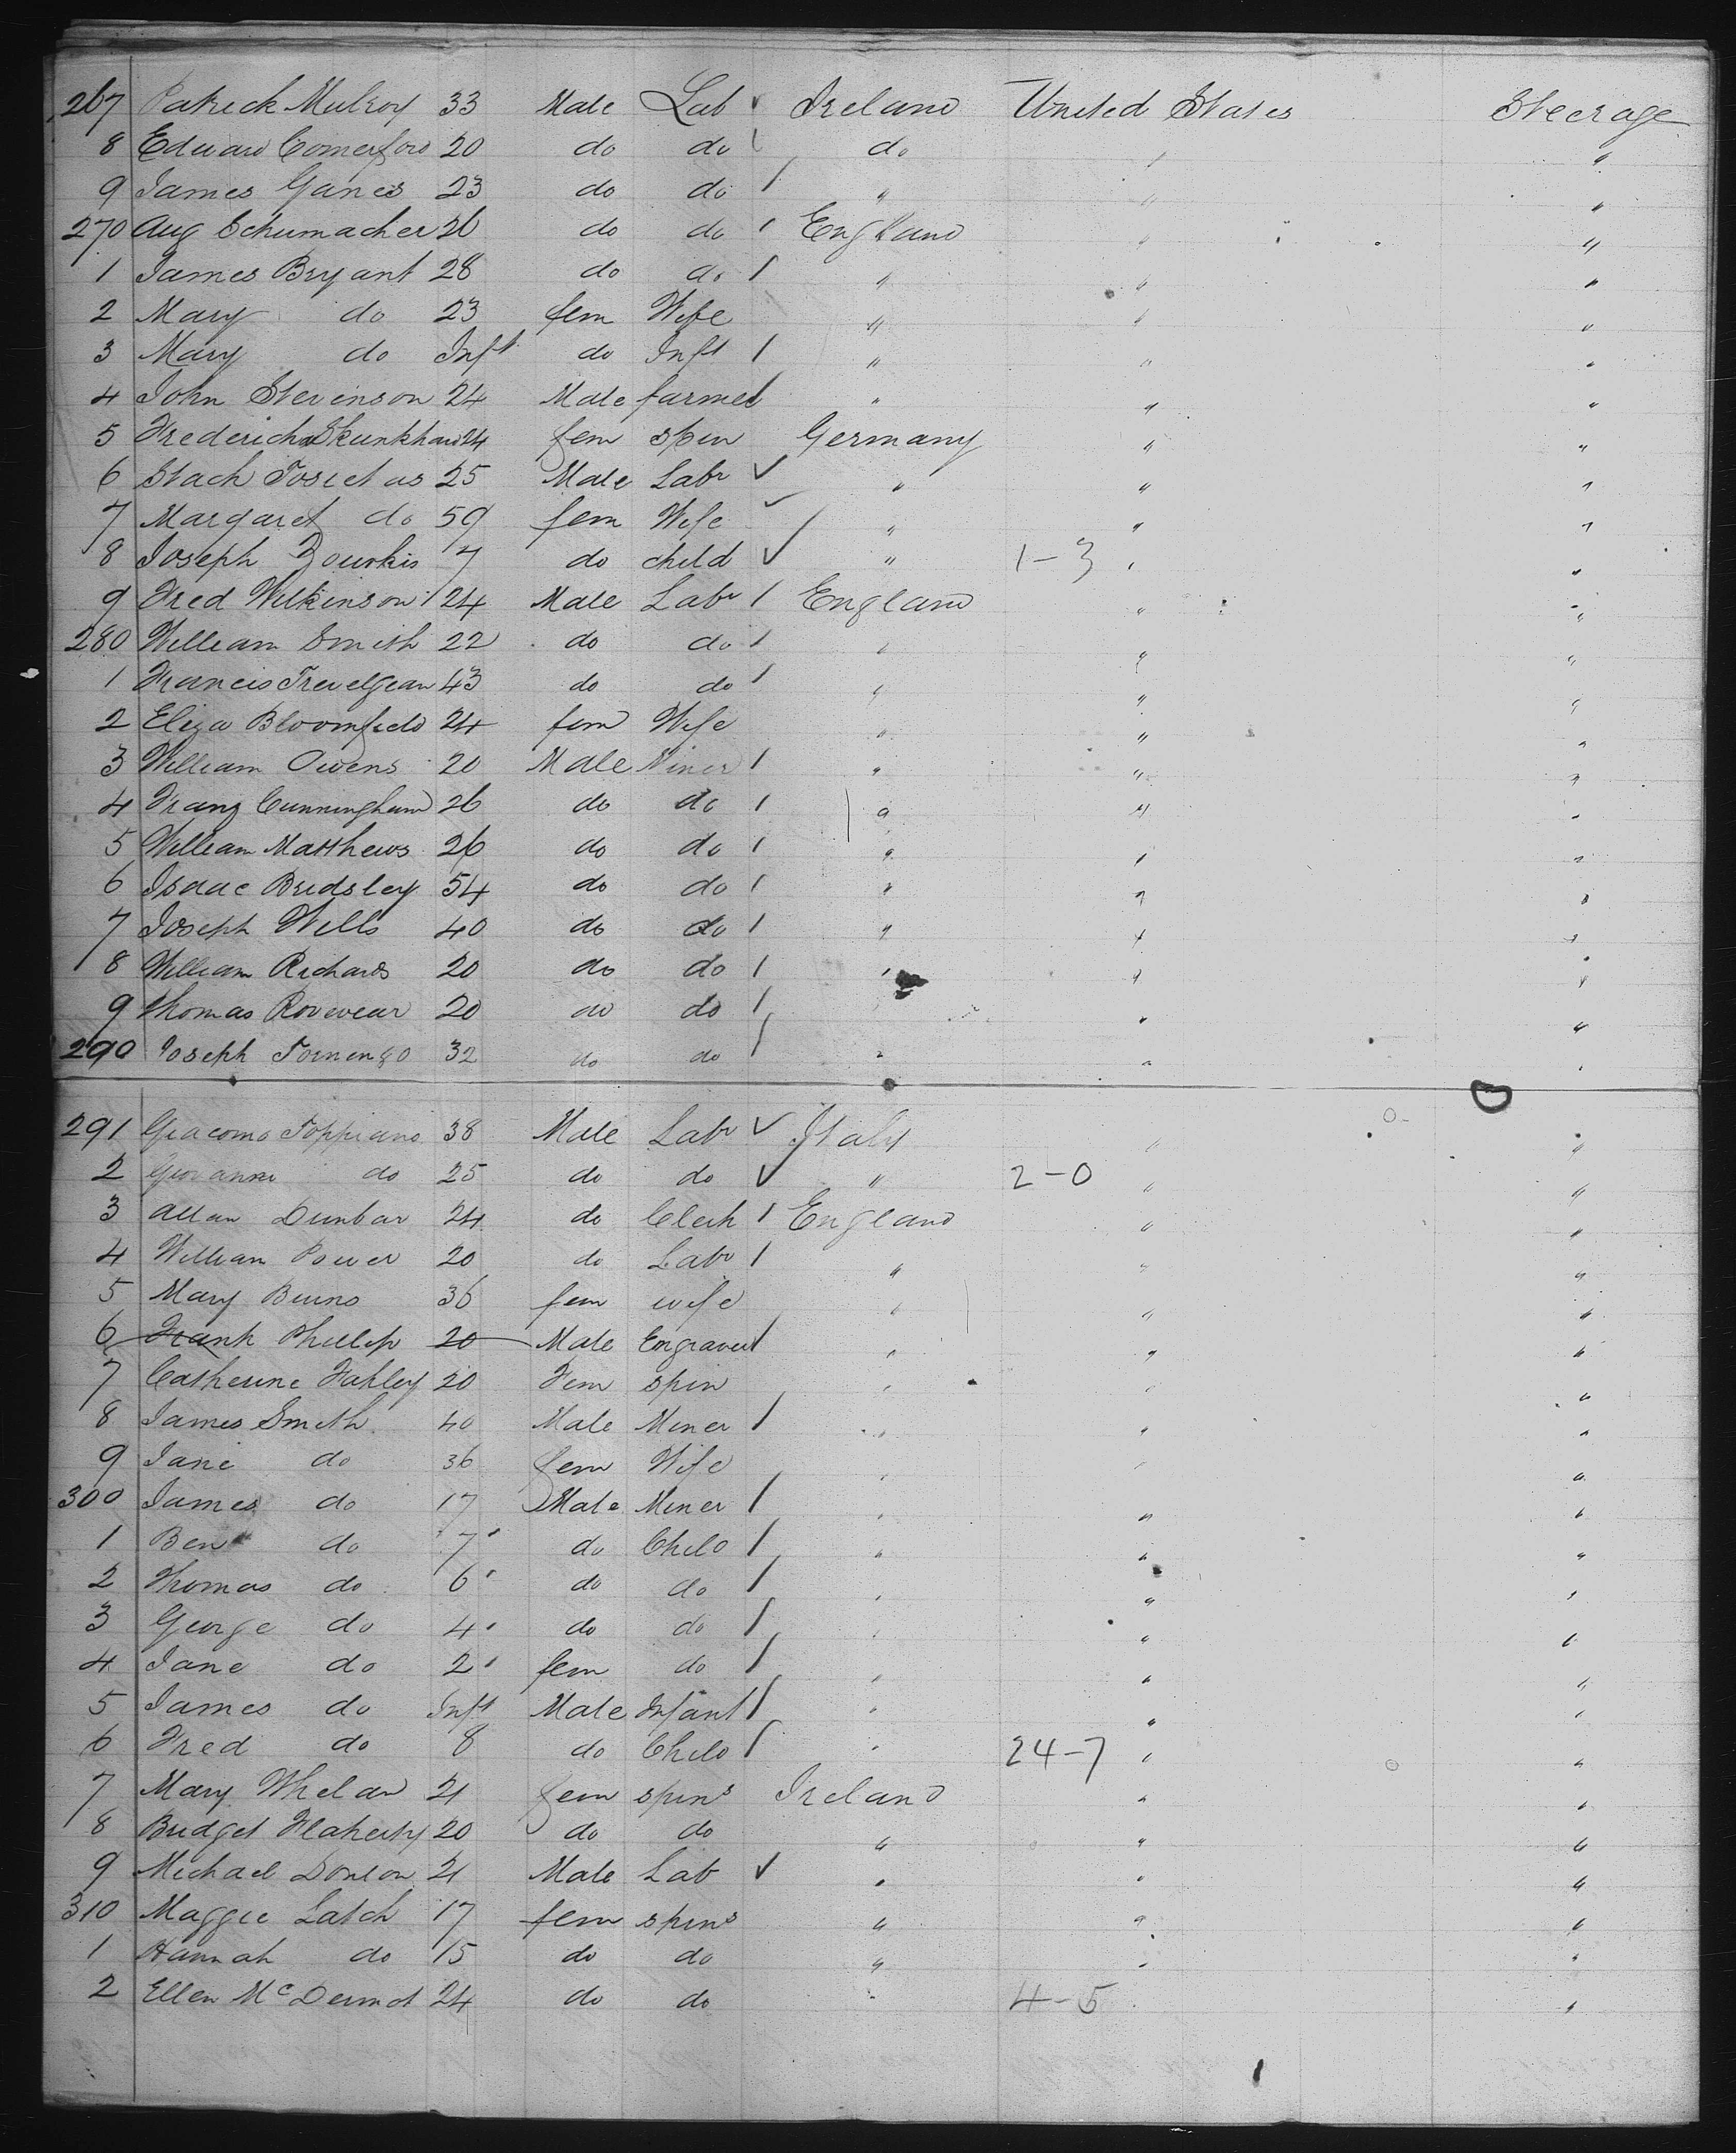 267 Patrick Mulroy 33 Male Lab Ireland United States Steerage
8 Edward Comerford 20 do do do " "
9 James 23 do do " " "
270 Aug Schumacher 26 do do England " "
1 James Bryant 28 do do " " "
2 Mary do 23 fem Wife " " "
3 Mary do Inft do Inft " " "
4 John Stevenson 24 Male farmer " " "
5 24 fem spin Germany " "
6 25 Male Labr " " "
7 Margaret do 59 fem Wife " " "
8 Joseph 7 do child " 1-3 " "
9 Fred Wilkinson 24 Male Labr England " "
280 William Smith 22 do do " " "
1 Francis 43 do do " " "
2 Eliza Bloomfield 24 fem Wife " " "
3 William Owens 20 Male Miner " " "
4 Franz Cunningham 26 do do " " "
5 William Matthews 26 do do " " "
6 Isaac Bridsley 54 do do " " "
7 Joseph Wells 40 do do " " "
8 William Richards 20 do do " " "
9 Thomas 20 do do " "
290 Joseph 32 do do " " "
291 Giacomo Toppiano 38 Male Labr Italy " "
2 Giovanni do 25 do do " 2-0 " "
3 Allan Dunbar 24 do Clerk England " "
4 William Power 20 do Labr " " "
5 Mary Burns 36 fem wife " " "
6 Frank Phillip 20 Male Engraver " " "
7 Catherine Fahley 20 Fem spin " " "
8 James Smith 40 Male Miner " " "
9 Jane do 36 fem Wife " " "
300 James do 17 Male Miner " " "
1 Ben do 7 do Child " " "
2 Thomas do 6 do do " " "
3 George do 4 do do " " "
4 Jane do 2 fem do " " "
5 James do Inft Male Infant " " "
6 Fred do 8 do Child " 24-7 " "
7 Mary Whelan 21 fem spins Ireland " "
8 Bridget Flaherty 20 do do " " "
9 Michael Donlon 21 Male Lab " " "
310 Maggie Latch 17 fem spins " " "
1 Hannah do 15 do do " " "
2 Ellen McDermot 24 do do " 4-5 " "